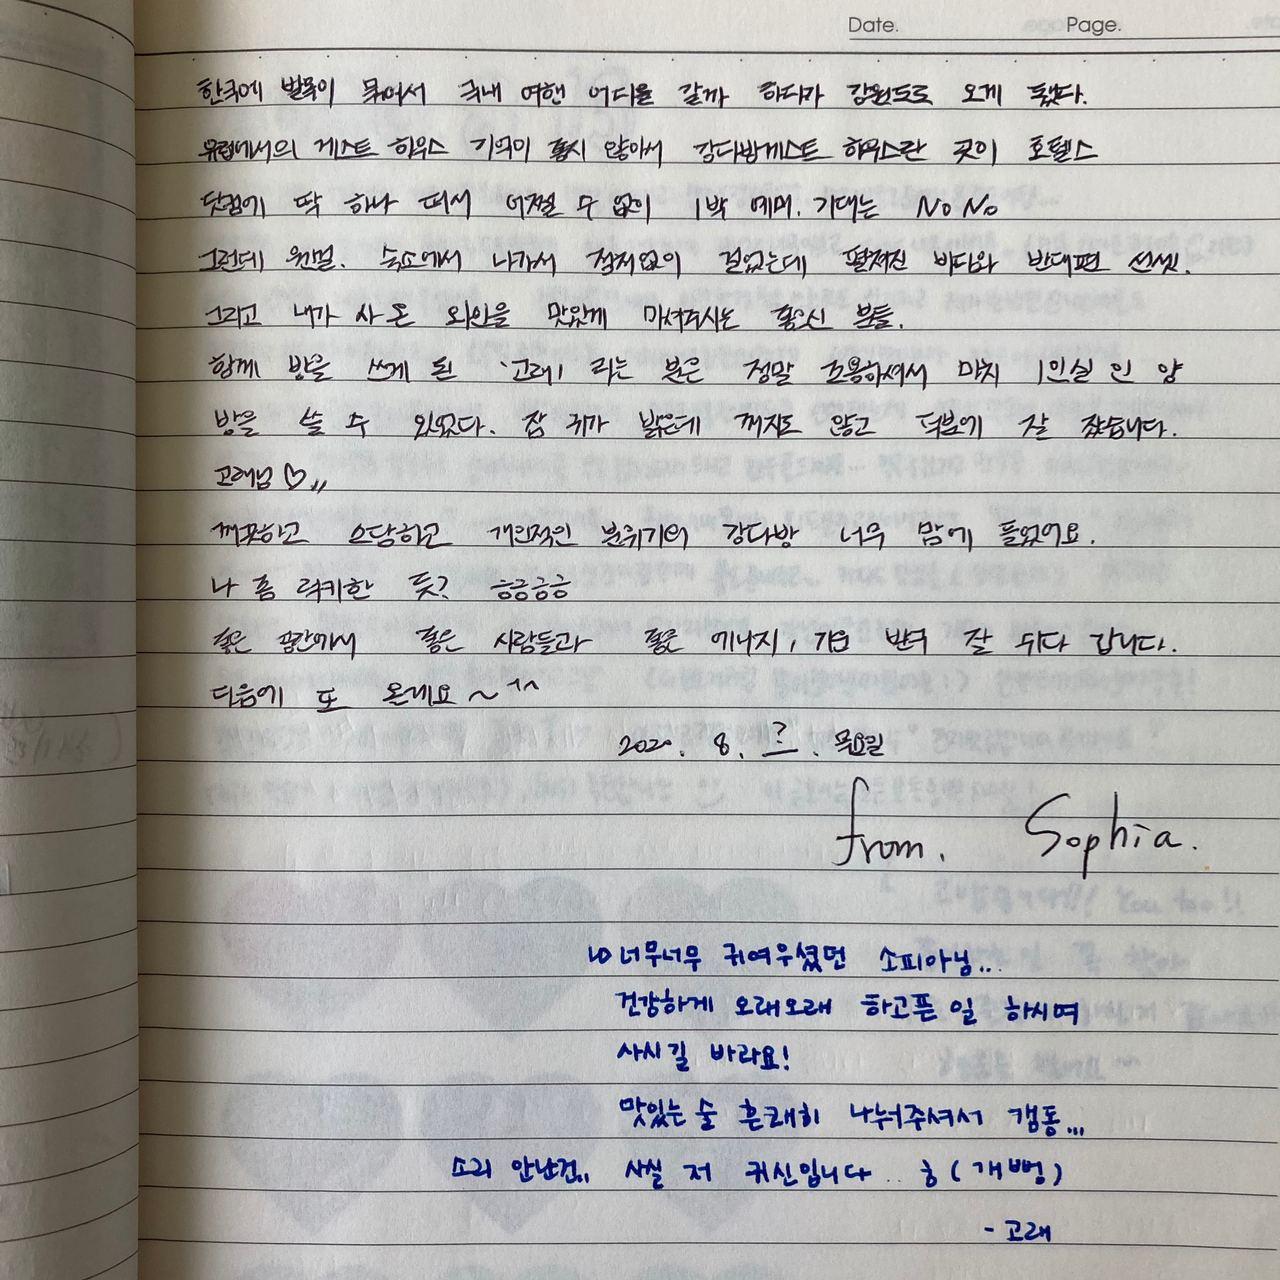 Date. Page.
한국에 발목이 묶여서 국내 여행 어디를 갈까 하다가 강원도로 오게 됐다.
유럽에서의 게스트 하우스 기억이 좋지 않아서 강다방게스트 하우스란 곳이 호텔스
닷컴에 딱 하나 떠서 어쩔 수 없이 1박 예매. 기대는 NoNo
그런데 웬걸. 숙소에서 나가서 정처없이 걸었는데 펼쳐진 바다와 반대편 선셋.
그리고 내가 사 온 와인을 맛있게 마셔주시는 좋으신 분들.
함께 방을 쓰게 된 '고래' 라는 분은 정말 조용하셔서 마치 1인실 인 양
방을 쓸 수 있었다. 잠 귀가 밝은데 깨지도 않고 덕분에 잘 잤습니다.
고래님 ♡〃
깨끗하고 소담하고 개인적인 분위기의 강다방 너무 맘에 들었어요.
나 좀 럭키한 듯? 킁킁킁킁
좋은 공간에서 좋은 사람들과 좋은 에너지, 기운 받아 잘 쉬다 갑니다.
다음에 또 올게요~^^
2020. 8. ?. 목요일
from. Sophia.
↳ 너무너무 귀여우셨던 소피아님...
건강하게 오래오래 하고픈 일 하시며
사시길 바라요!
맛있는 술 흔쾌히 나눠주셔서 캠동...
소리 안난건.. 사실 저 귀신입니다.. ㅎ (개뻥)
- 고래